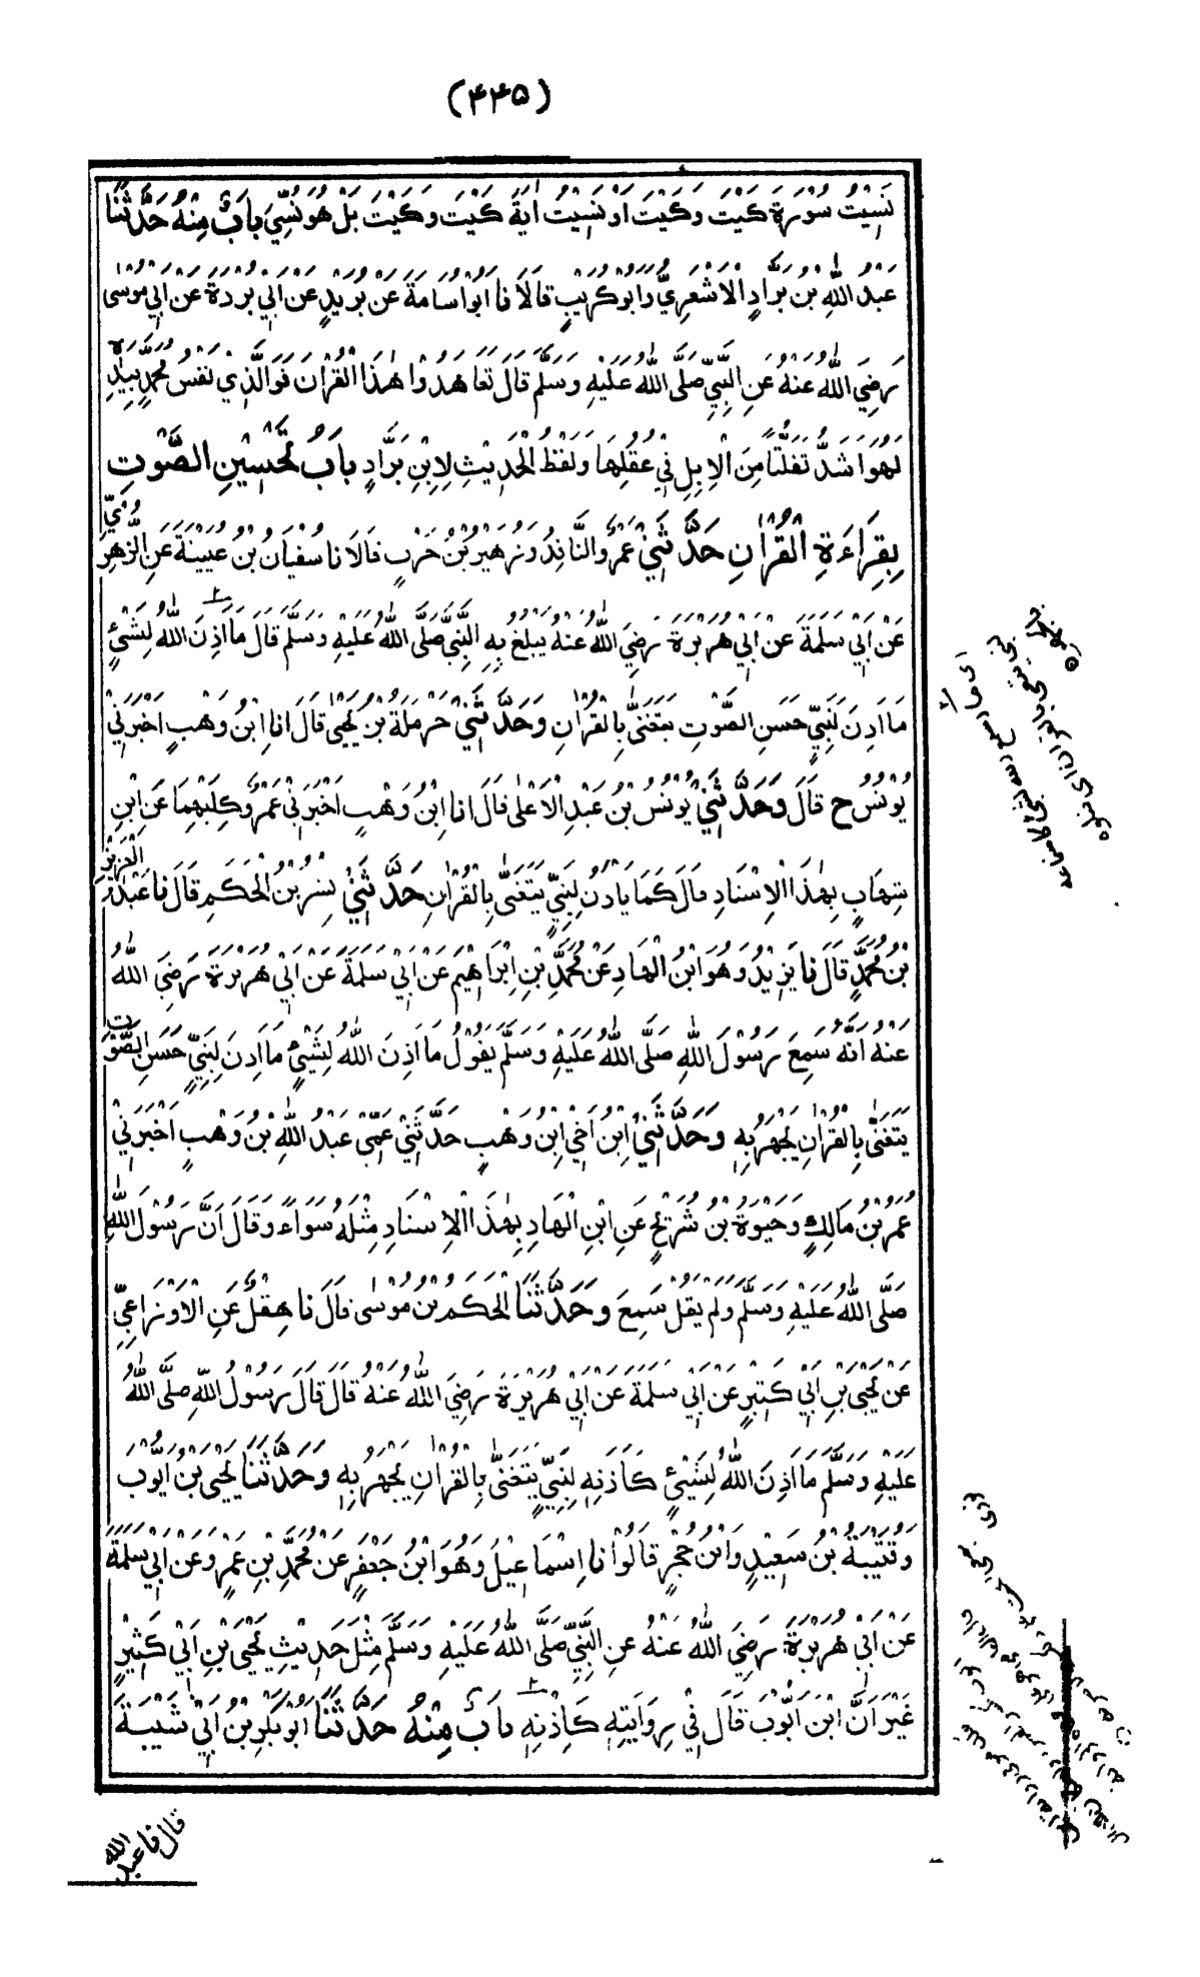 (۴۴۵)
نَسِيْتُ سُوْرَةَ كَيْتَ وَكَيْتَ اَوْ نَسِيْتُ اٰيَةَ كَيْتَ وَكَيْتَ بَلْ هُوَ نُسِّيَ بَابٌ مِنْهُ حَدَّثَنَا
عَبْدُ اللّٰهِ بْنُ بَرَّادٍ الْاَشْعَرِيُّ وَابُوْ كُرَيْبٍ قَالَا نَا اَبُوْ اُسَامَةَ عَنْ بُرَيْدٍ عَنْ اَبِيْ بُرْدَةَ عَنْ اَبِيْ مُوْسٰى
رَضِيَ اللّٰهُ عَنْهُ عَنِ النَّبِيِّ صَلَّى اللّٰهُ عَلَيْهِ وَسَلَّمَ قَالَ تَعَاهَدُوْا هٰذَا الْقُرْاٰنَ فَوَالَّذِيْ نَفْسُ مُحَمَّدٍ بِيَدِهٖ
لَهُوَ اَشَدُّ تَفَلُّتًا مِنَ الْاِبِلِ فِيْ عُقُلِهَا وَلَفْظُ الْحَدِيْثِ لِابْنِ بَرَّادٍ بَابُ تَحْسِيْنِ الصَّوْتِ
بِقِرَاءَةِ الْقُرْاٰنِ حَدَّثَنِيْ عَمْرٌو النَّاقِدُ وَزُهَيْرُ بْنُ حَرْبٍ قَالَا نَا سُفْيَانُ بْنُ عُيَيْنَةَ عَنِ الزُّهْرِيِّ
عَنْ اَبِيْ سَلَمَةَ عَنْ اَبِيْ هُرَيْرَةَ رَضِيَ اللّٰهُ عَنْهُ يَبْلُغُ بِهِ النَّبِيَّ صَلَّى اللّٰهُ عَلَيْهِ وَسَلَّمَ قَالَ مَا اَذِنَ اللّٰهُ لِشَيْءٍ
مَا اَذِنَ لِنَبِيٍّ حَسَنِ الصَّوْتِ يَتَغَنّٰى بِالْقُرْاٰنِ وَحَدَّثَنِيْ حَرْمَلَةُ بْنُ يَحْيٰى قَالَ انا ابْنُ وَهْبٍ اَخْبَرَنِيْ
يُوْنُسُ ح قَالَ وَحَدَّثَنِيْ يُوْنُسُ بْنُ عَبْدِ الْاَعْلٰى قَالَ انا ابْنُ وَهْبٍ اَخْبَرَنِيْ عَمْرٌو كِلَيْهِمَا عَنِ ابْنِ
شِهَابٍ بِهٰذَا الْاِسْنَادِ قَالَ كَمَا يَاْذَنُ لِنَبِيٍّ يَتَغَنّٰى بِالْقُرْاٰنِ حَدَّثَنِيْ بِشْرُ بْنُ الْحَكَمِ قَالَ نا عَبْدُ الْعَزِيْزِ
بْنُ مُحَمَّدٍ قَالَ نا يَزِيْدُ وَهُوَ ابْنُ الْهَادِ عَنْ مُحَمَّدِ بْنِ اِبْرَاهِيْمَ عَنْ اَبِيْ سَلَمَةَ عَنْ اَبِيْ هُرَيْرَةَ رَضِيَ اللّٰهُ
عَنْهُ اَنَّهُ سَمِعَ رَسُوْلَ اللّٰهِ صَلَّى اللّٰهُ عَلَيْهِ وَسَلَّمَ يَقُوْلُ مَا اَذِنَ اللّٰهُ لِشَيْءٍ مَا اَذِنَ لِنَبِيٍّ حَسَنِ الصَّوْتِ
يَتَغَنّٰى بِالْقُرْاٰنِ يَجْهَرُ بِهٖ وَحَدَّثَنِيْ ابْنُ اَخِيْ ابْنِ وَهْبٍ حَدَّثَنِيْ عَمِّيْ عَبْدُ اللّٰهِ بْنُ وَهْبٍ اَخْبَرَنِيْ
عُمَرُ بْنُ مَالِكٍ وَحَيْوَةُ بْنُ شُرَيْحٍ عَنِ ابْنِ الْهَادِ بِهٰذَا الْاِسْنَادِ مِثْلَهُ سَوَاءً وَقَالَ اَنَّ رَسُوْلَ اللّٰهِ
صَلَّى اللّٰهُ عَلَيْهِ وَسَلَّمَ وَلَمْ يَقُلْ سَمِعَ وَحَدَّثَنَا الْحَكَمُ بْنُ مُوْسٰى قَالَ نا هِقْلٌ عَنِ الْاَوْزَاعِيِّ
عَنْ يَحْيَى بْنِ اَبِيْ كَثِيْرٍ عَنْ اَبِيْ سَلَمَةَ عَنْ اَبِيْ هُرَيْرَةَ رَضِيَ اللّٰهُ عَنْهُ قَالَ قَالَ رَسُوْلُ اللّٰهِ صَلَّى اللّٰهُ
عَلَيْهِ وَسَلَّمَ مَا اَذِنَ اللّٰهُ لِشَيْءٍ كَاَذَنِهٖ لِنَبِيٍّ يَتَغَنّٰى بِالْقُرْاٰنِ يَجْهَرُ بِهٖ وَحَدَّثَنَا يَحْيَى بْنُ اَيُّوْبَ
وَقُتَيْبَةُ بْنُ سَعِيْدٍ وَابْنُ حُجْرٍ قَالُوْا نا اِسْمَاعِيْلُ وَهُوَ ابْنُ جَعْفَرٍ عَنْ مُحَمَّدِ بْنِ عَمْرٍو عَنْ اَبِيْ سَلَمَةَ
عَنْ اَبِيْ هُرَيْرَةَ رَضِيَ اللّٰهُ عَنْهُ عَنِ النَّبِيِّ صَلَّى اللّٰهُ عَلَيْهِ وَسَلَّمَ مِثْلَ حَدِيْثِ يَحْيَى بْنِ اَبِيْ كَثِيْرٍ
غَيْرَ اَنَّ ابْنَ اَيُّوْبَ قَالَ فِيْ رِوَايَتِهٖ كَاِذْنِهٖ بَابٌ مِنْهُ حَدَّثَنَا اَبُوْ بَكْرِ بْنُ اَبِيْ شَيْبَةَ
قال نا عبد الله